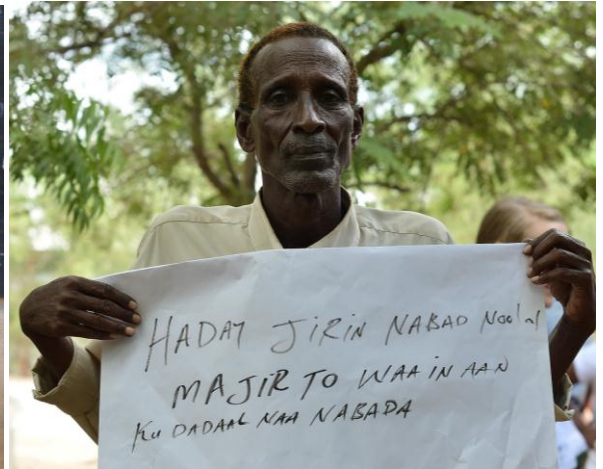 HADAY JIRIN NABAD Noolal
MAJIRTO WAA IN AAN
Ku DADAAL NAA NABADA